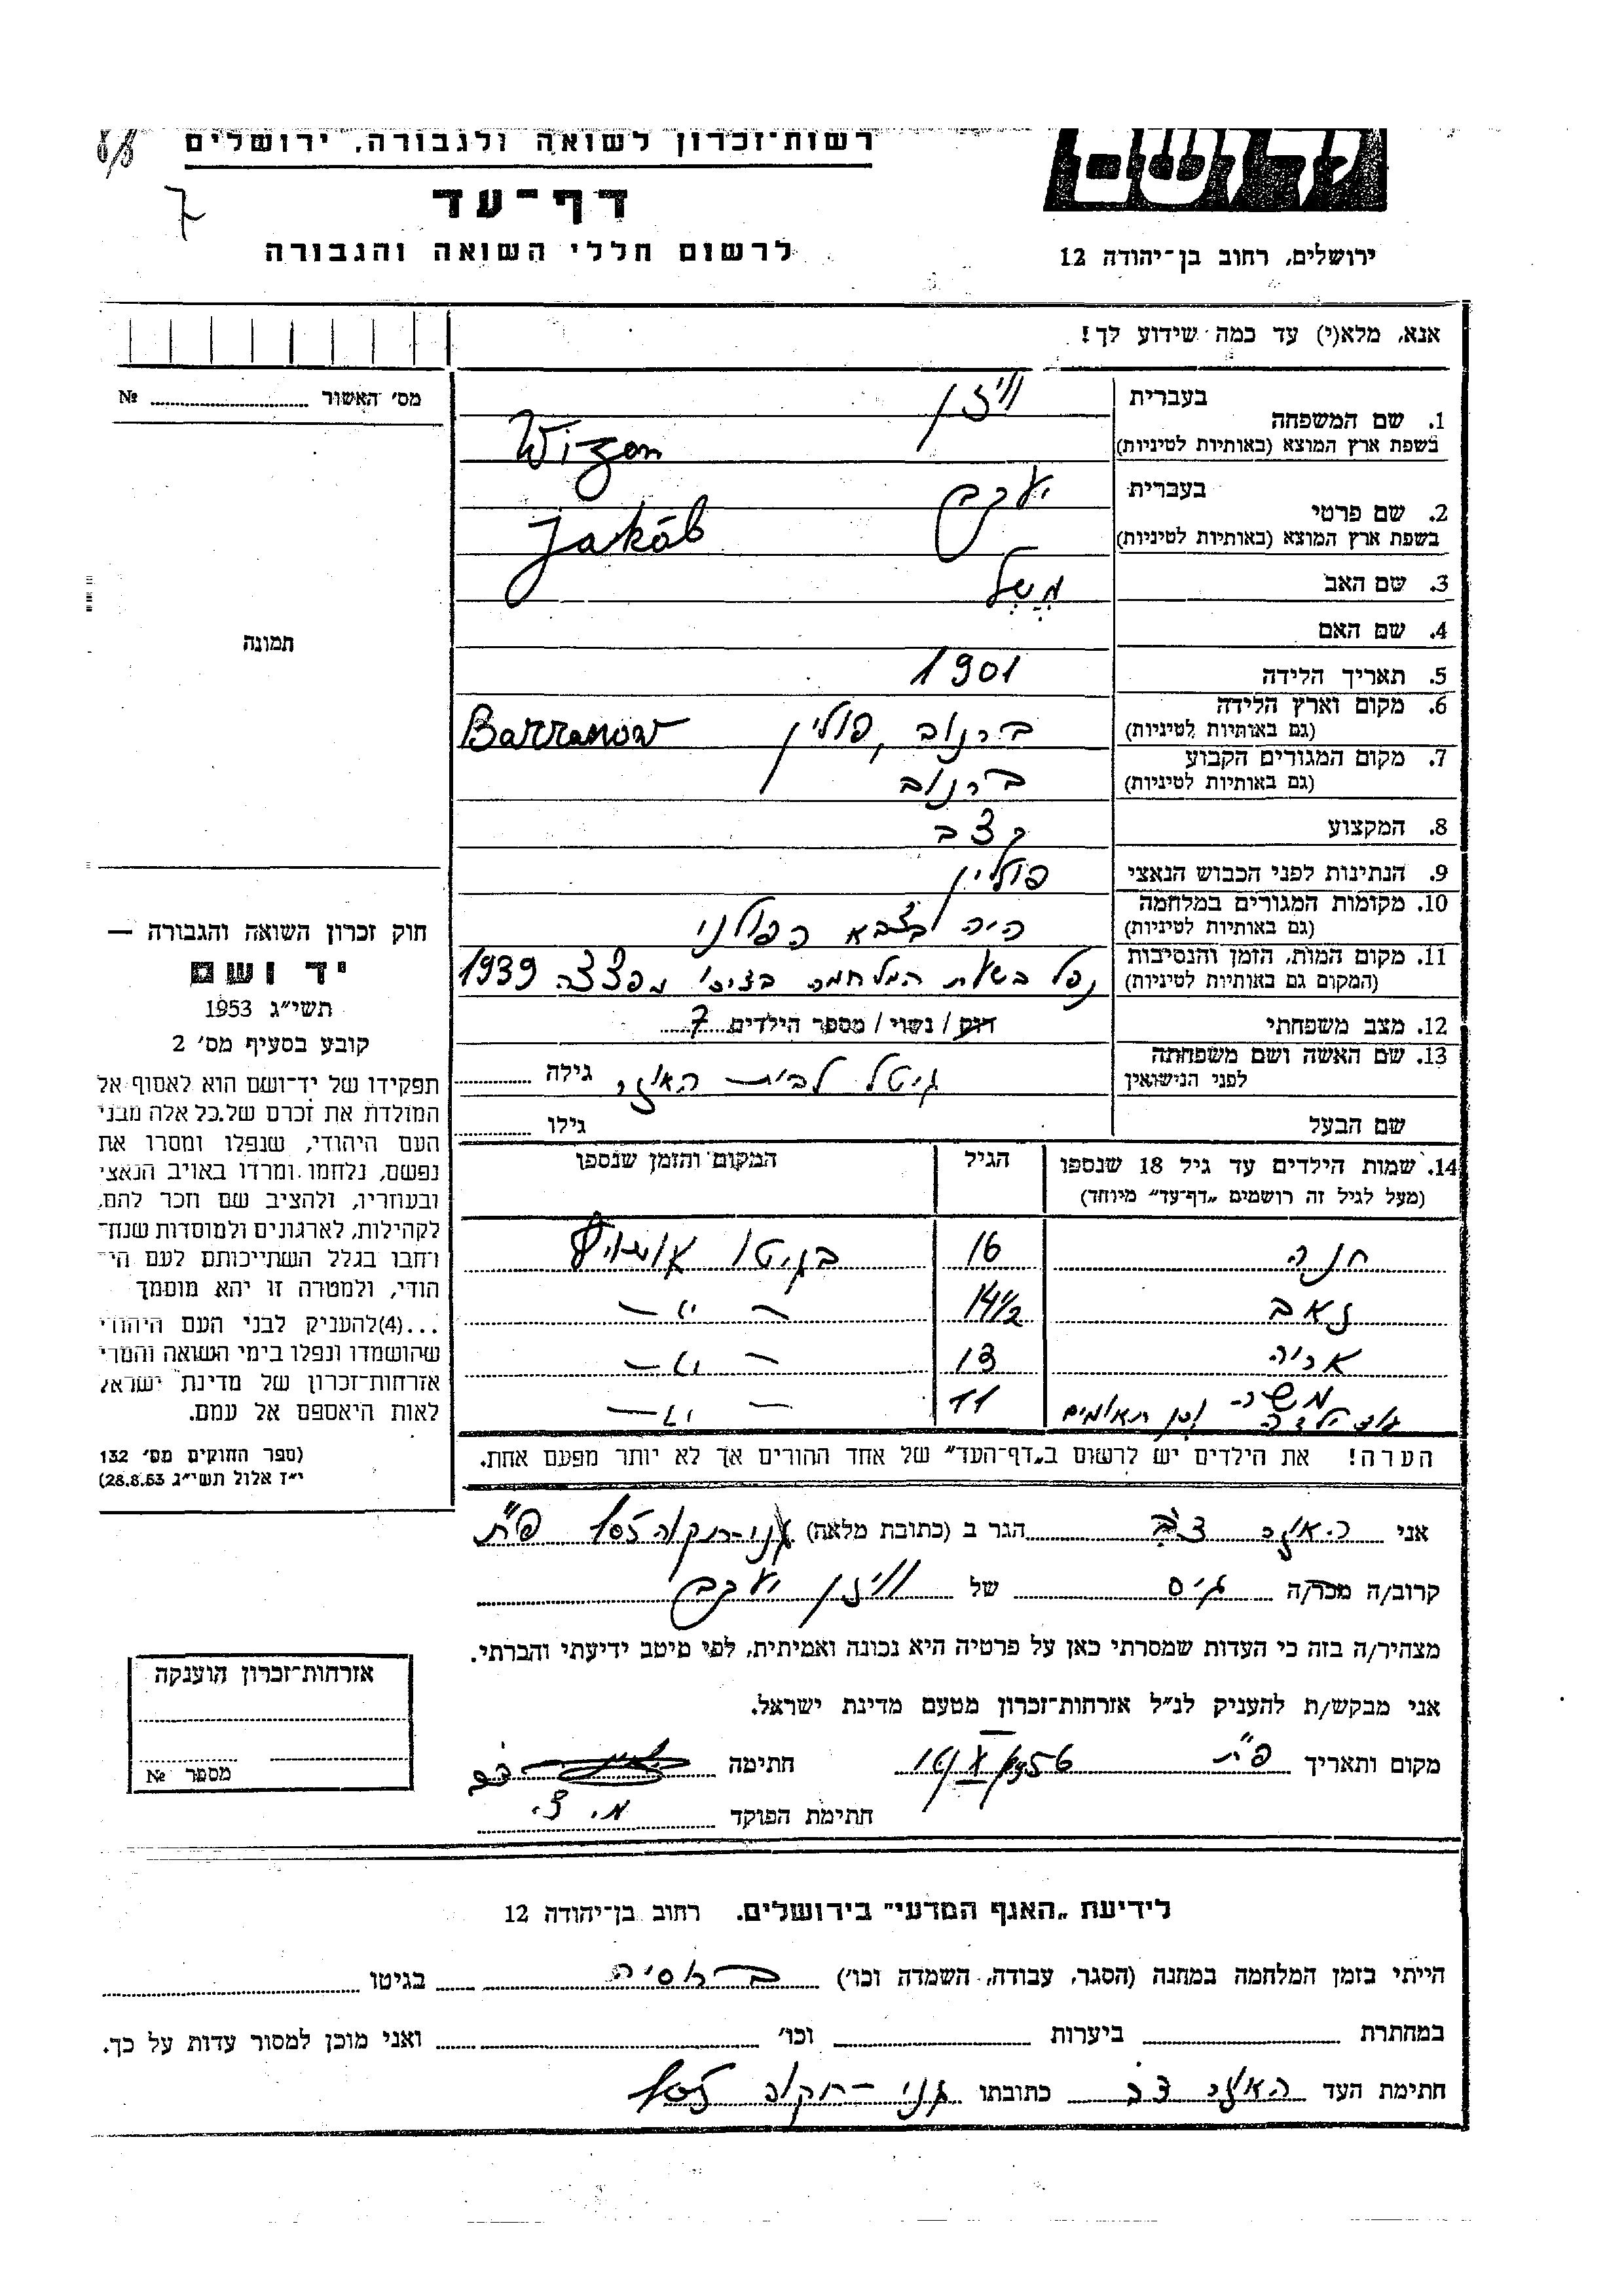 רשות־זכרון לשואה ולגבורה, ירושלים
דף־עד
לרשום חללי השואה והגבורה
7
ירושלים, רחוב בן־יהודה 12
אנא, מלא(י) עד כמה שידוע לך!
מס' האשור № 
1. שם המשפחה
בעברית ווייזן
בשפת ארץ המוצא (באותיות לטיניות) Wizen
2. שם פרטי
בעברית יעקב
בשפת ארץ המוצא (באותיות לטיניות) Jakób
3. שם האב משל
4. שם האם
5. תאריך הלידה 1901
6. מקום וארץ הלידה ברנוב, פולין Barranow
(גם באותיות לטיניות)
7. מקום המגורים הקבוע ברנוב
(גם באותיות לטיניות)
8. המקצוע קצב
9. הנתינות לפני הכבוש הנאצי פולין
10. מקומות המגורים במלחמה היה בצבא הפולני
(גם באותיות לטיניות)
11. מקום המות, הזמן והנסיבות נפל בשעת המלחמה מפצצה 1939
(המקום גם באותיות לטיניות)
12. מצב משפחתי רווק / נשוי / מספר הילדים 7
13. שם האשה ושם משפחתה גיטל לבית גילה
לפני הנישואין
שם הבעל גילו
14. שמות הילדים עד גיל 18 שנספו הגיל המקום והזמן שנספו
(מעל לגיל זה רושמים „דף־עד" מיוחד)
חנה 16 בגיטו
זאב 14½ — " —
אריה 13 — " —
משה 11 — " —
ועוד ילדה וכן תאומים
הערה! את הילדים יש לרשום ב„דף־העד" של אחד ההורים אך לא יותר מפעם אחת.
תמונה
חוק זכרון השואה והגבורה —
יד ושם
תשי"ג 1953
קובע בסעיף מס' 2
תפקידו של יד־ושם הוא לאסוף אל
המולדת את זכרם של כל אלה מבני
העם היהודי, שנפלו ומסרו את
נפשם, נלחמו ומרדו באויב הנאצי
ובעוזריו, ולהציב שם וזכר להם,
לקהילות, לארגונים ולמוסדות שנח־
רבו בגלל השתייכותם לעם הי־
הודי, ולמטרה זו יהא מוסמך
...(4) להעניק לבני העם היהודי
שהושמדו ונפלו בימי השואה והמרי
אזרחות־זכרון של מדינת ישראל
לאות היאספם אל עמם.
(ספר החוקים מס' 132
י"ז אלול תשי"ג 28.8.53)
אני צבי הגר ב (כתובת מלאה) גני־תקוה 105 פ"ת
קרוב/ה מכר/ה גיס של ווייזן יעקב
מצהיר/ה בזה כי העדות שמסרתי כאן על פרטיה היא נכונה ואמיתית, לפי מיטב ידיעתי והכרתי.
אני מבקש/ת להעניק לנ"ל אזרחות־זכרון מטעם מדינת ישראל.
מקום ותאריך פ"ת חתימה
חתימת הפוקד מ. צ.
אזרחות־זכרון הוענקה
מספר №
לידיעת „האגף המדעי" בירושלים. רחוב בן־יהודה 12
הייתי בזמן המלחמה במחנה (הסגר, עבודה, השמדה וכו') ברוסיה בגיטו
במחתרת ביערות וכו' ואני מוכן למסור עדות על כך.
חתימת העד כתובתו גני־תקוה 105